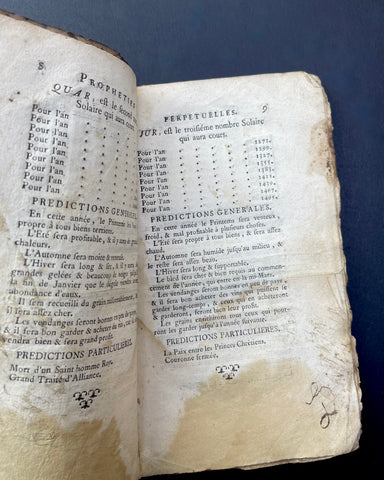 8
PROPHETIES
QUAR, est le second
Solaire qui aura cours
Pour l'an
Pour l'an
Pour l'an
Pour l'an
Pour l'an
Pour l'an
Pour l'an
Pour l'an
PREDICTIONS GENERALES
En cette année, le Printems
à tous biens terriens.
L'Eté sera profitable, & il y aura de
chaleurs.
L'Automne sera moite &
L'Hiver sera long & sec, il
grandes gelées & beaucoup de neige
la fin de Janvier que le
abondance d'eaux.
Il sera recueilli du grain
sera assez cher.
Les vendanges seront bonnes
& il sera bon garder & acheter du vin, car
vendra bien & sera grand profit.
PREDICTIONS PARTICULIERES.
Mort d'un Saint homme Roy.
Grand Traité d'Alliance.
PERPETUELLES. 9
JUR, est le troisiéme nombre Solaire
qui aura cours.
Pour l'an
Pour l'an
Pour l'an
Pour l'an
Pour l'an
Pour l'an
Pour l'an
Pour l'an
PREDICTIONS GENERALES.
En cette année le Printems sera venteux,
froid, & mal profitable à tous biens.
L'Eté sera propre à tous biens, & sera assez
chaud.
L'Automne sera humide jusqu'au milieu, &
le reste au froid.
L'Hiver sera long & supportable.
Le bled sera cher & bien requis au commen-
cement de l'année, qui entre en la mi-Mars.
Les vendanges seront bonnes en peu de pays
& il sera bon acheter des vins qui puissent se
garder long-tems, & ceux qui en acheteront
& garderont, feront bien leur profit.
Les grains contraindront tous ceux qui pour-
ront les garder jusqu'à l'année suivante.
PREDICTIONS PARTICULIERES.
La Paix entre les Princes Chrétiens,
Couronne fermée.